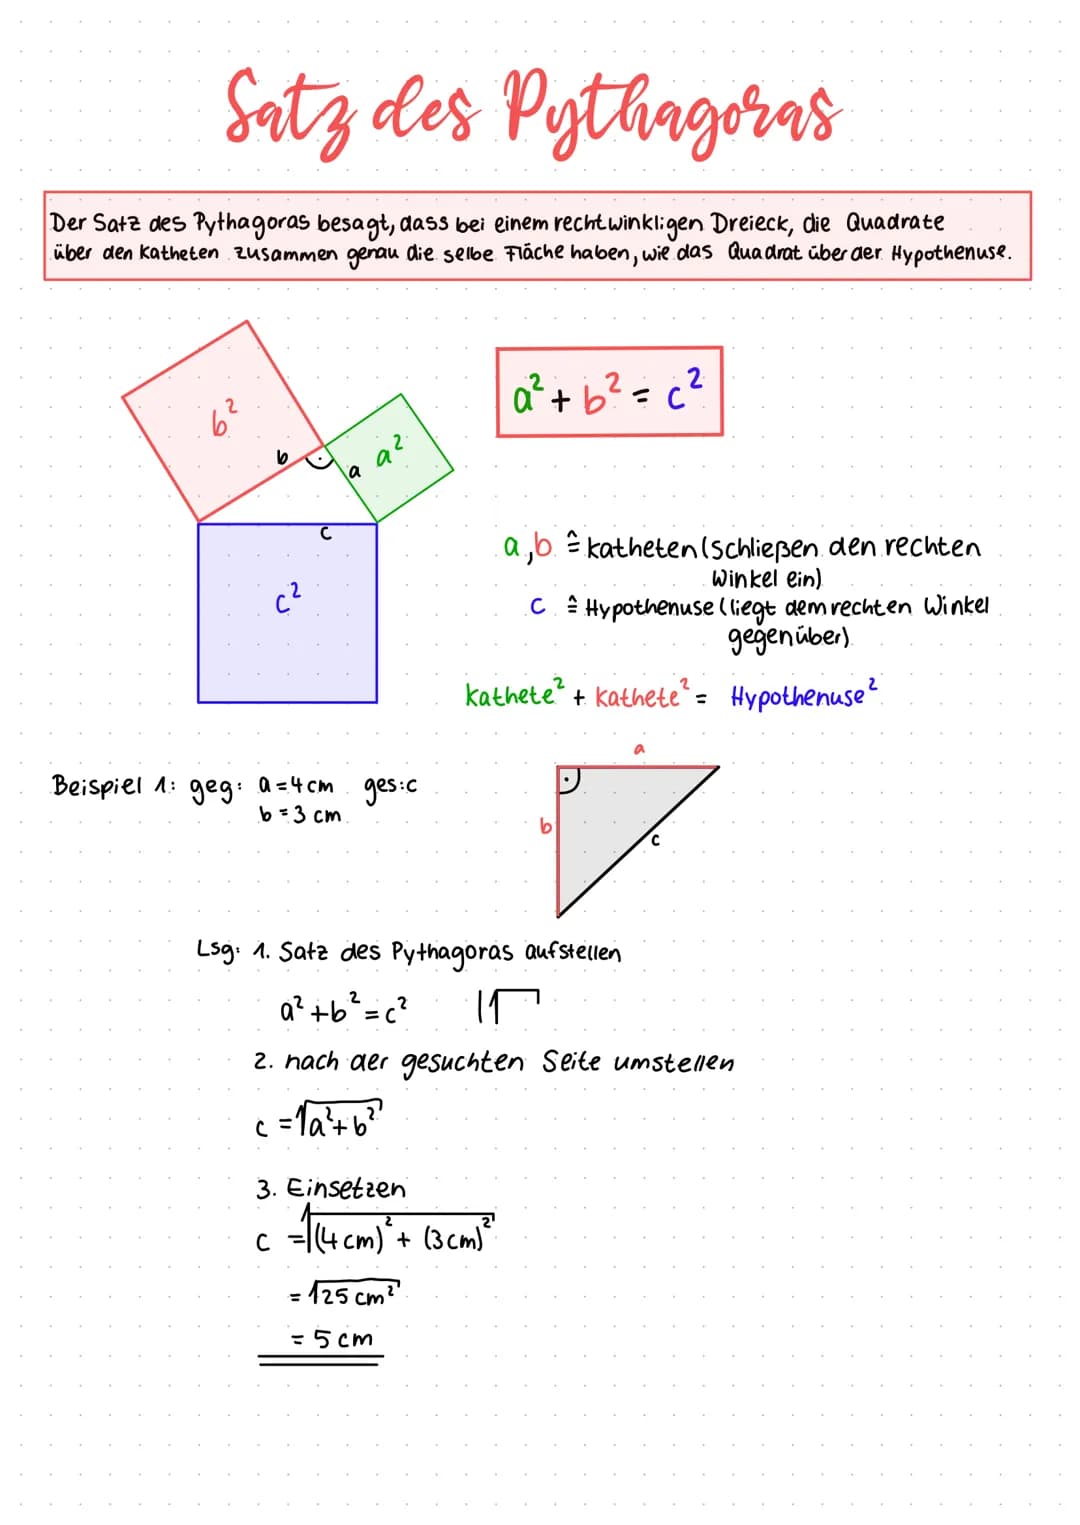 Satz des Pythagoras
Der Satz des Pythagoras besagt, dass bei einem rechtwinkligen Dreieck, die Quadrate
über den Katheten zusammen genau die selbe Fläche haben, wie das Quadrat über der Hypothenuse.
b²
b
a
a²
c
c²
a² + b² = c²
a, b ≙ Katheten (schließen den rechten
Winkel ein)
c ≙ Hypothenuse (liegt dem rechten Winkel
gegenüber)
Kathete² + Kathete² = Hypothenuse²
Beispiel 1: geg: a = 4 cm ges: c
b = 3 cm
a
b
c
Lsg: 1. Satz des Pythagoras aufstellen
a² + b² = c² |√
2. nach der gesuchten Seite umstellen
c = √a² + b²
3. Einsetzen
c = √(4 cm)² + (3 cm)²
= √25 cm²
= 5 cm